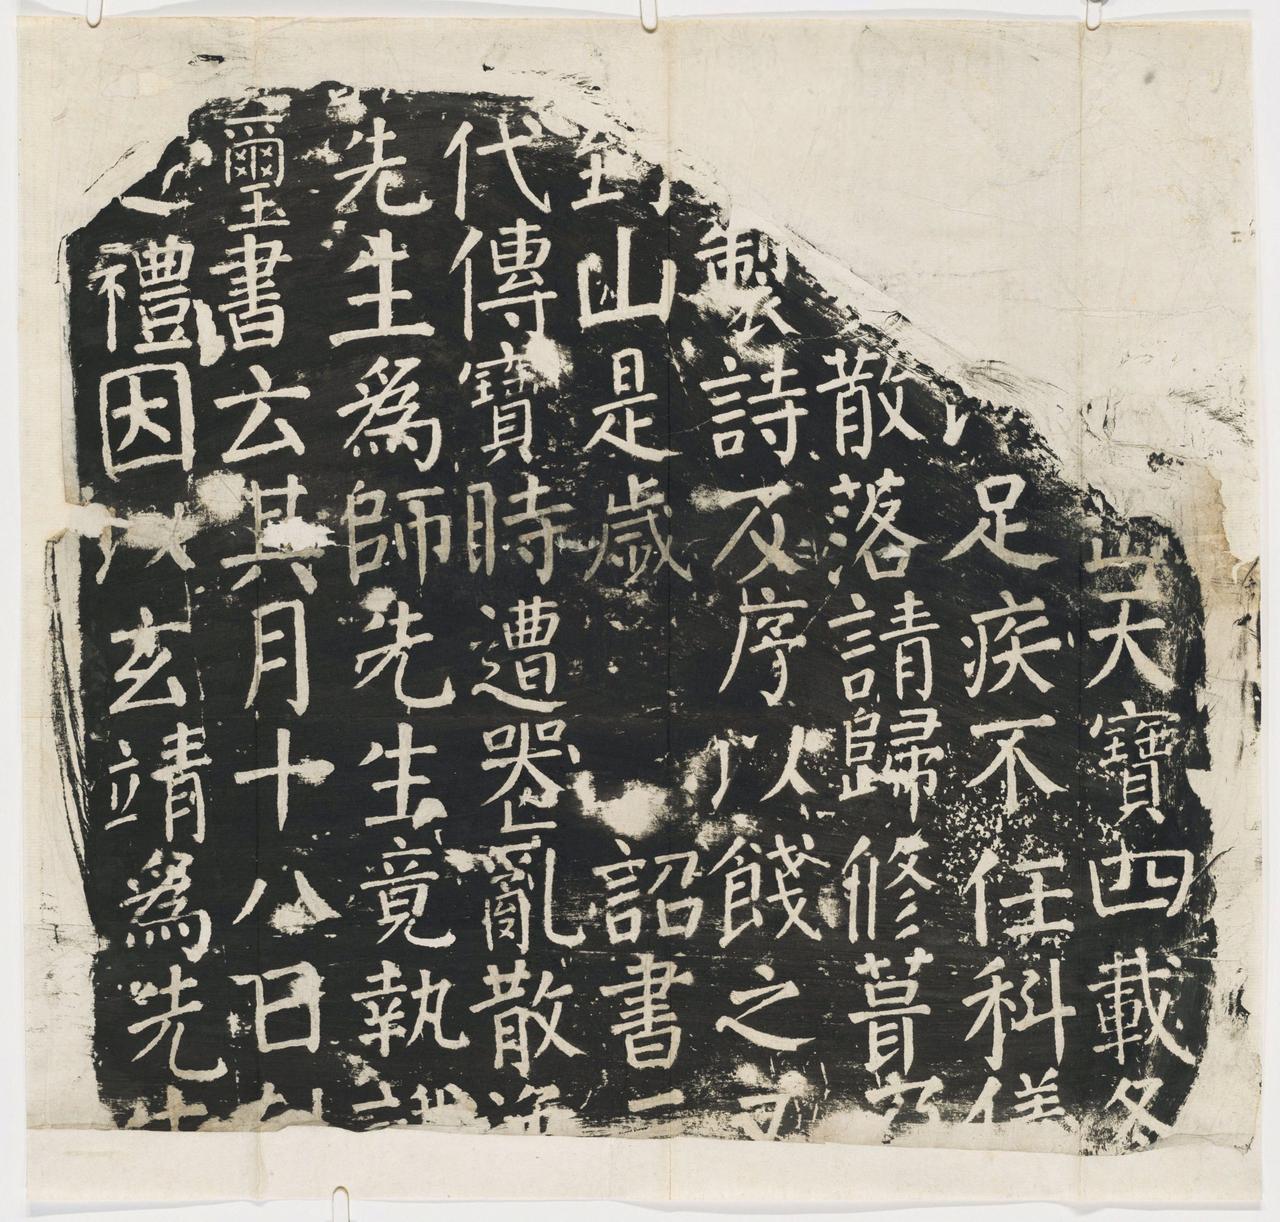 天寶四載冬
足疾不任科儀
散落請歸修葺
製詩及序以餞之又
到山是歲詔書
代傳寶時遭喪亂散逸
先生爲師先生竟執謙
璽書云其月十八日
禮因以玄靖爲先生